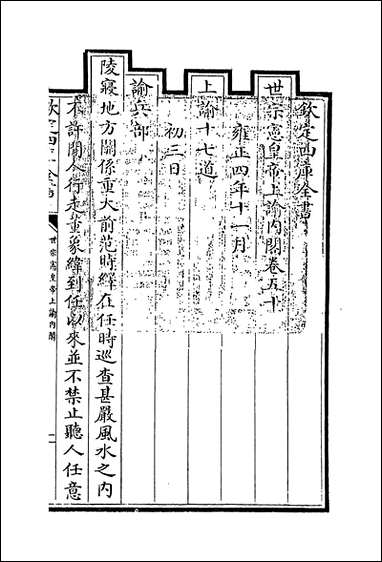 欽定四庫全書
世宗憲皇帝上諭內閣卷五十
雍正四年十一月
上諭十七道
初三日
諭兵部
陵寢地方關係重大前范時繹在任時巡查甚嚴風水之內
不許閒人行走董象緯到任以來並不禁止聽人任意
世宗憲皇帝上諭內閣